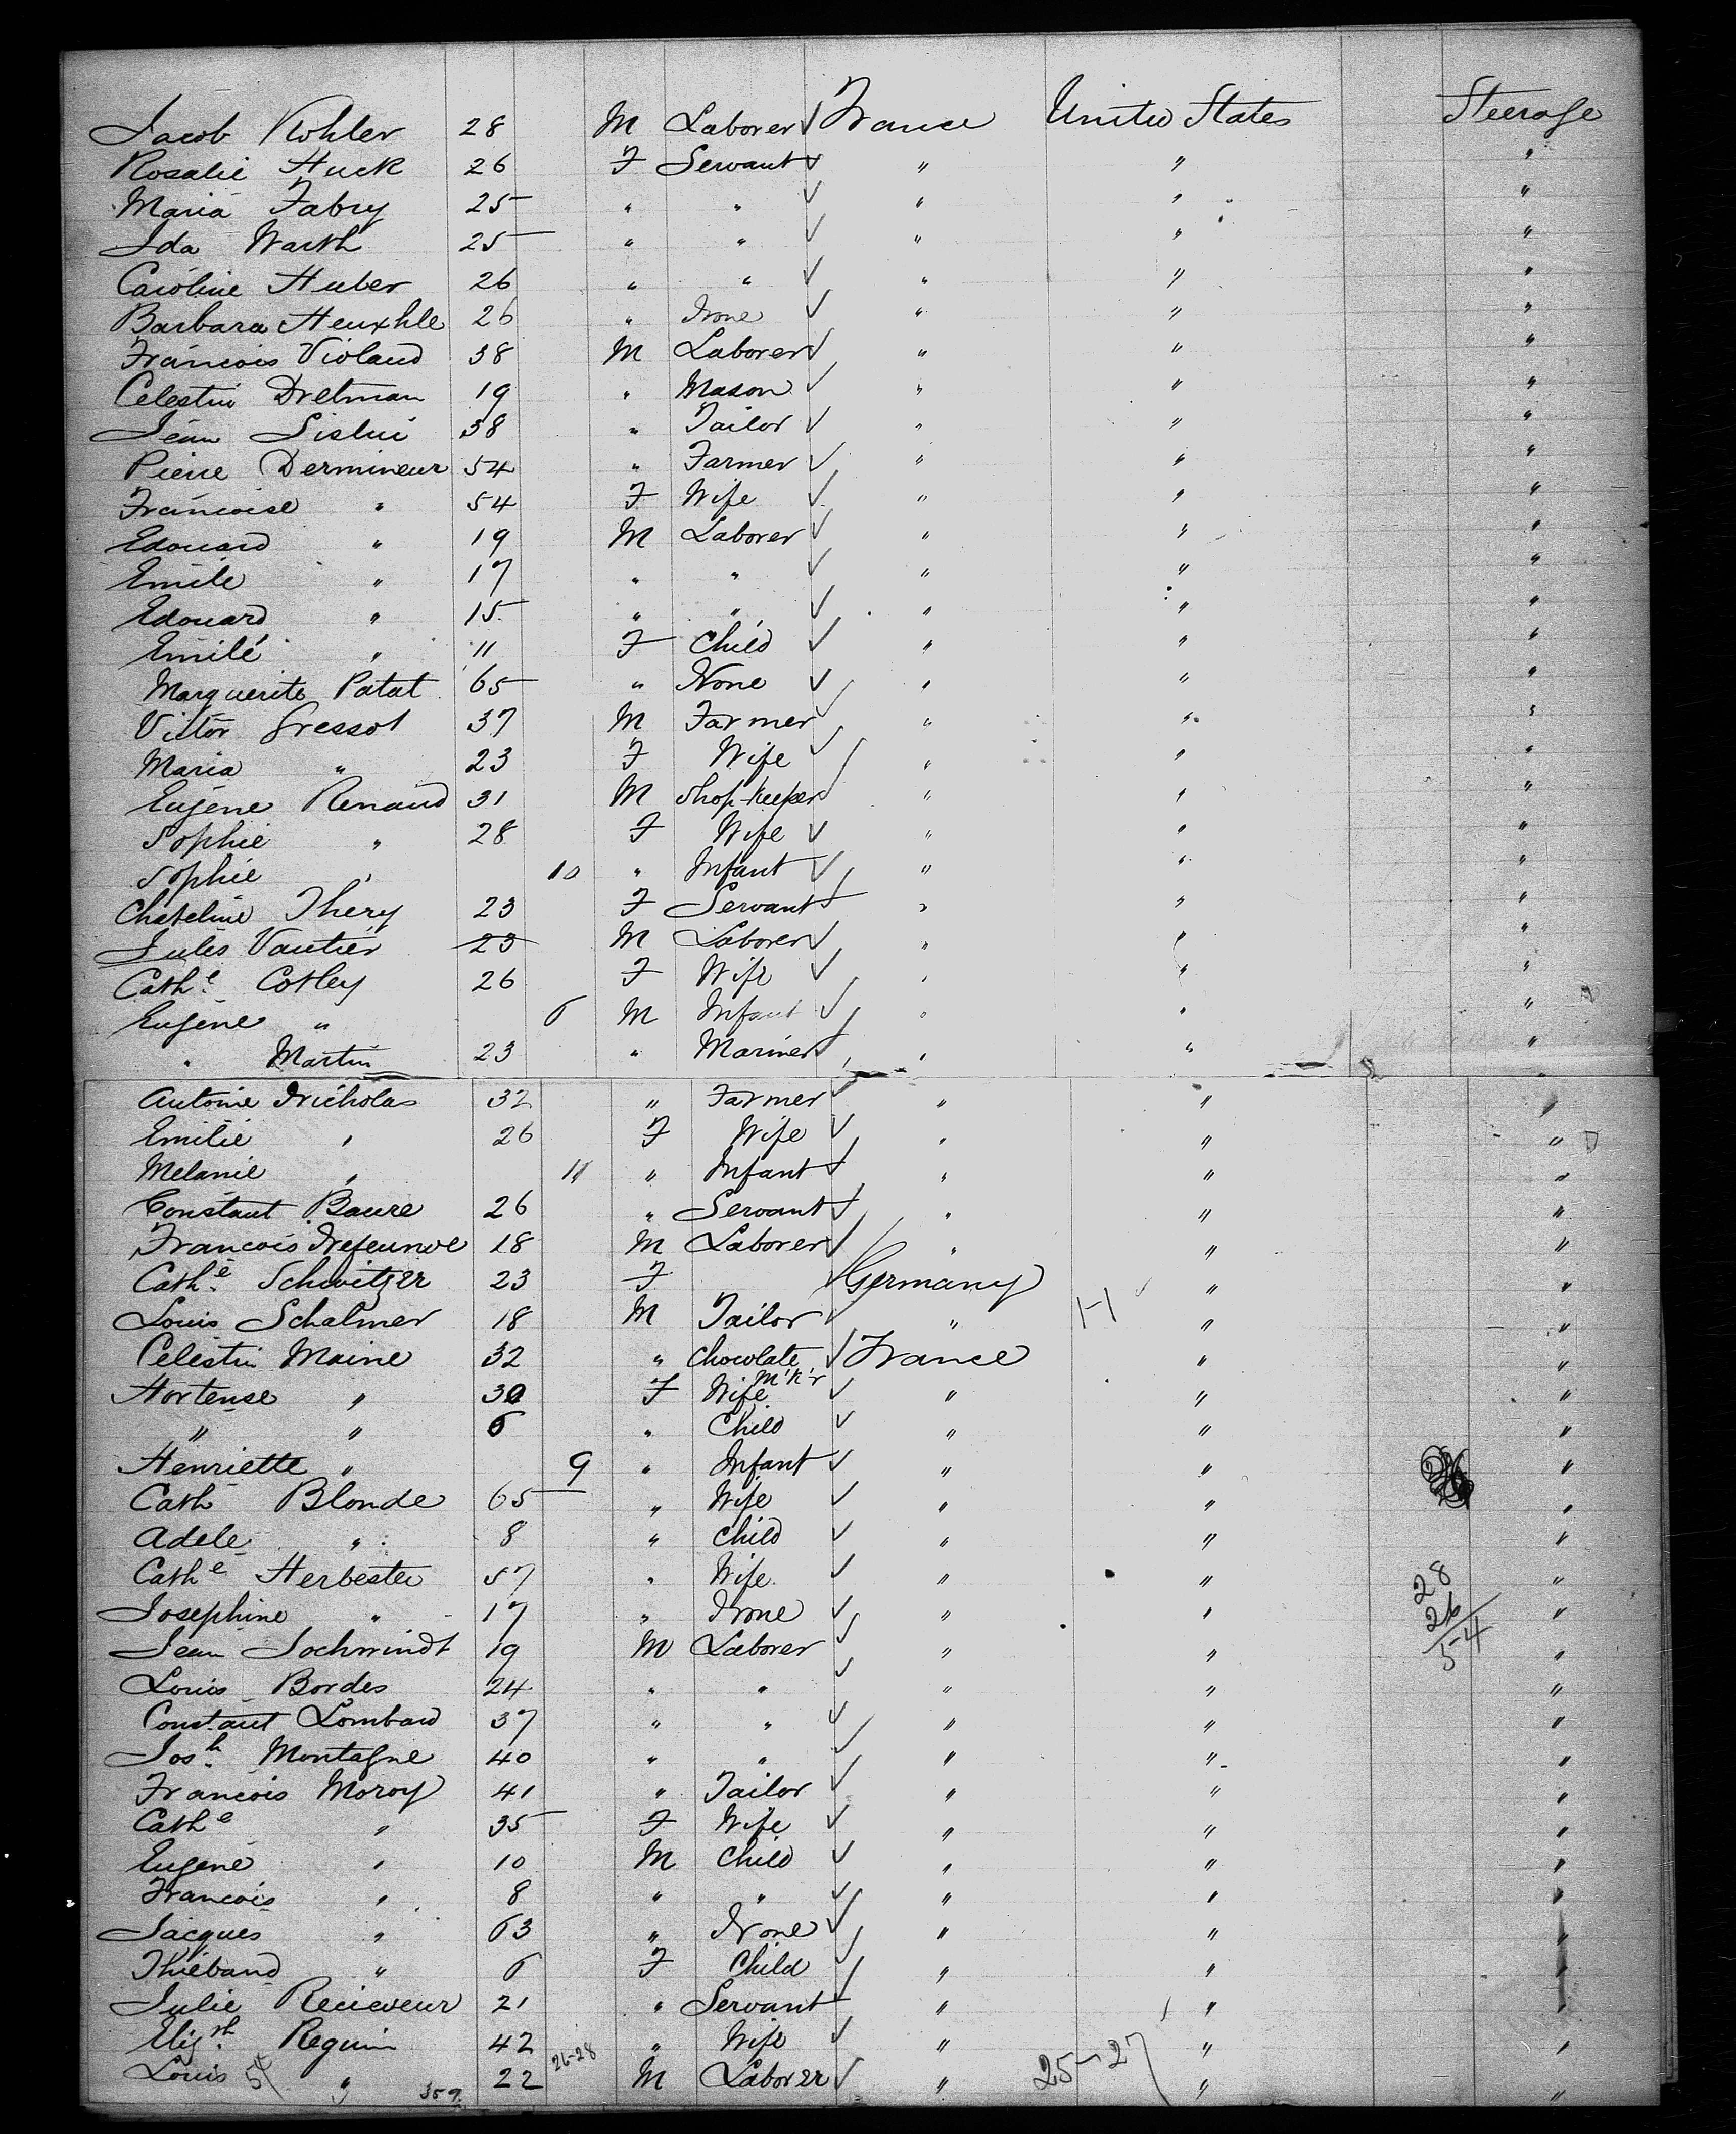 Jacob Kohler 28 M Laborer France United States Steerage
Rosalie Huck 26 F Servant " " "
Maria Fabry 25 " " " " "
Ida Warth 25 " " " " "
Caroline Huber 26 " " " " "
Barbara Heuxhle 26 " None " " "
Francois Violand 38 M Laborer " " "
Celestin Dretman 19 " Mason " " "
Jean Sislui 38 " Tailor " " "
Pierre Dermineur 54 " Farmer " " "
Francoise " 54 F Wife " " "
Edouard " 19 M Laborer " " "
Emile " 17 " " " " "
Edouard " 15 " " " " "
Emilé " 11 F Child " " "
Marguerite Patat 65 " None " " "
Victor Gressot 37 M Farmer " " "
Maria " 23 F Wife " " "
Eugene Renaud 31 M Shop-keeper " " "
Sophie " 28 F Wife " " "
Sophie " 10 " Infant " " "
Chateline Thery 23 F Servant " " "
Jules Vautier 23 M Laborer " " "
Cathe Cotley 26 F Wife " " "
Eugene " 6 M Infant " " "
" Martin 23 " Mariner " " "
Antoine Nicholas 32 " Farmer " " "
Emilie " 26 F Wife " " "
Melanie " 11 " Infant " " "
Constant Baure 26 " Servant " " "
Francois 18 M Laborer " " "
Cathe Schwitzer 23 F Germany " "
Louis Schalmer 18 M Tailor " " "
Celestin Maine 32 " Chocolate M'k'r France " "
Hortense " 30 F Wife " " "
" " 6 " Child " " "
Henriette " 9 " Infant " " "
Cath Blonde 65 " Wife " " "
Adele " 8 " Child " " "
Cathe Herbester 57 " Wife " " "
Josephine " 17 " None " " "
28
26
54
Jean Sochwindt 19 M Laborer " " "
Louis Bordes 24 " " " " "
Constant Lombard 37 " " " " "
Josh Montagne 40 " " " " "
Francois Moroy 41 " Tailor " " "
Cathe " 35 F Wife " " "
Eugene " 10 M Child " " "
Francois " 8 " " " " "
Jacques " 63 " None " " "
Thieband " 6 F Child " " "
Julie Recieveur 21 " Servant " " "
Elizth Reguin 42 " Wife " " "
Louis " 22 26-28 M Laborer " 25-27 " "
54 359